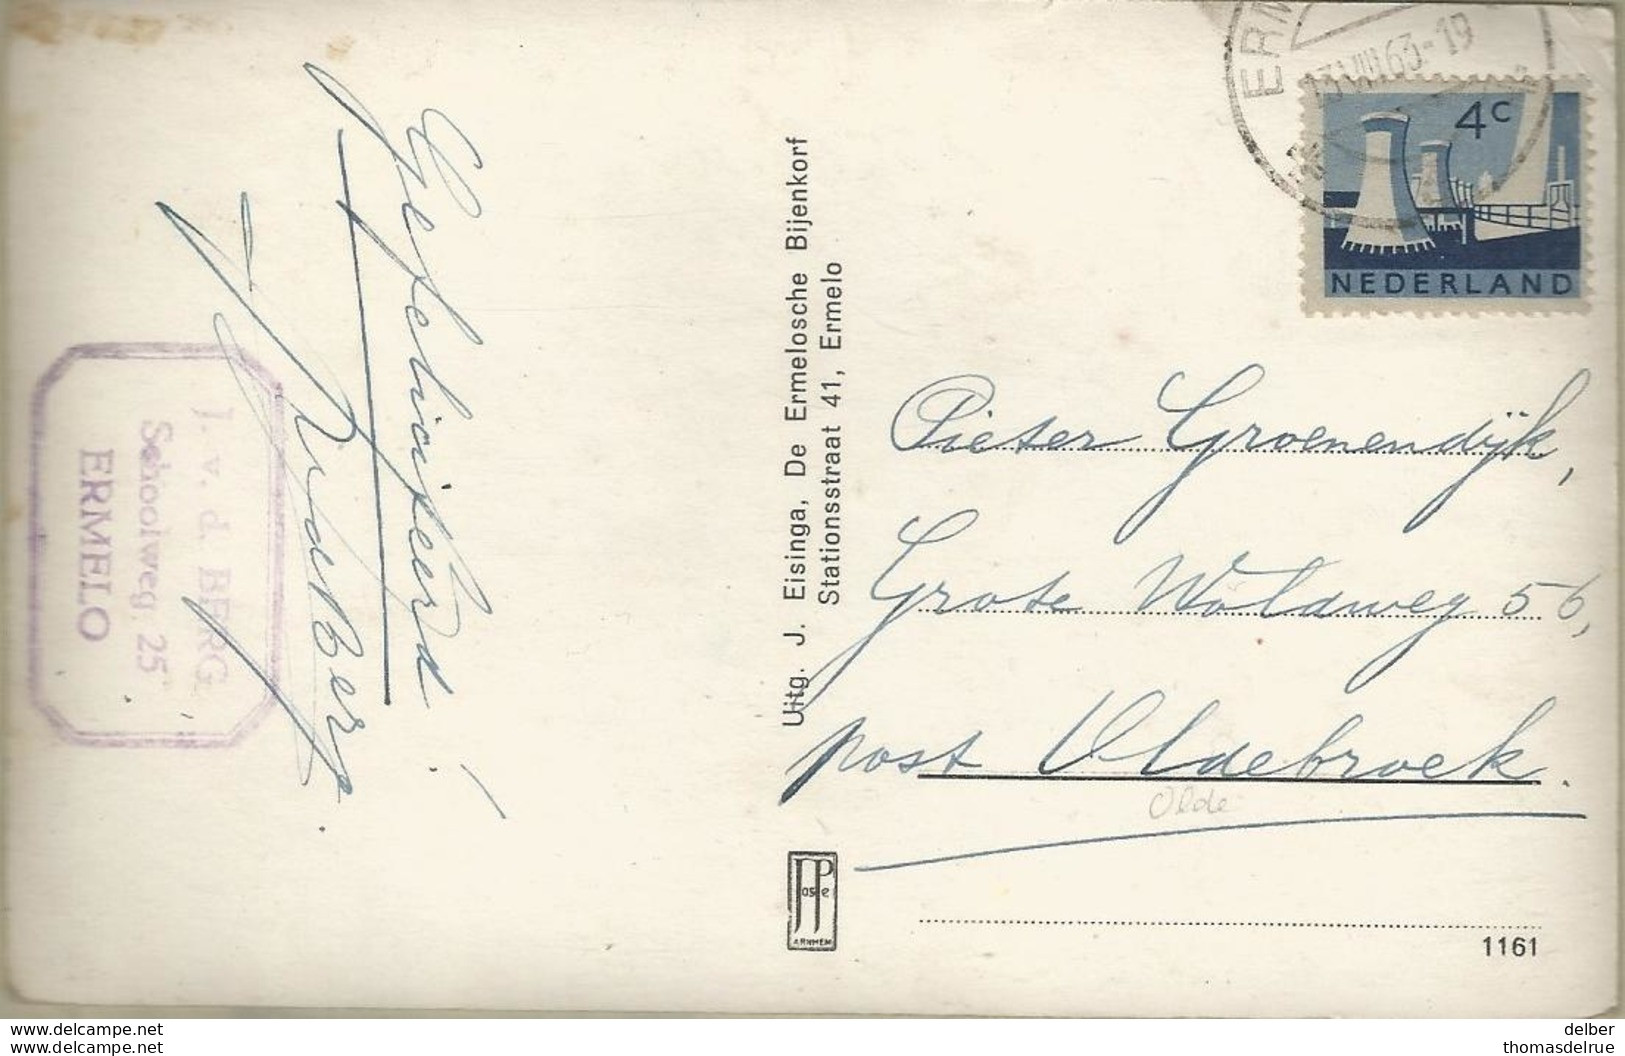 Gefeliciteerd!
J. v. d. Berg
J. v. d. BERG
Schoolweg 25
ERMELO
Uitg. J. Eisinga, De Ermelosche Bijenkorf
Stationsstraat 41, Ermelo
ERM
13 VIII 63-19
4c
NEDERLAND
Pieter Groenendijk,
Grote Woldweg 56,
post Oldebroek.
Olde
JosPe
ARNHEM
1161
delcampe.net
delcampe.net
delber
thomasdelrue